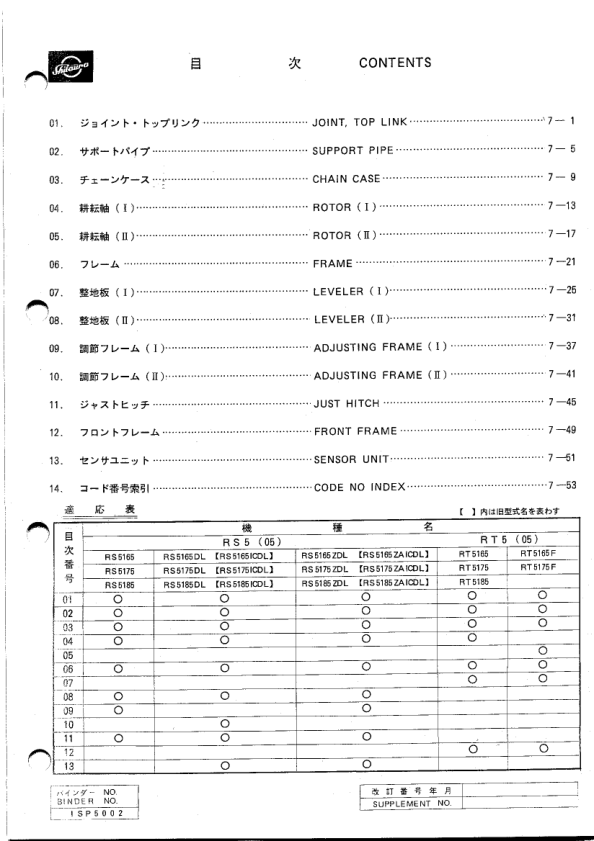 Shibaura
目 次 CONTENTS
01. ジョイント・トップリンク JOINT, TOP LINK 7－1
02. サポートパイプ SUPPORT PIPE 7－5
03. チェーンケース CHAIN CASE 7－9
04. 耕耘軸（Ⅰ） ROTOR（Ⅰ） 7－13
05. 耕耘軸（Ⅱ） ROTOR（Ⅱ） 7－17
06. フレーム FRAME 7－21
07. 整地板（Ⅰ） LEVELER（Ⅰ） 7－25
08. 整地板（Ⅱ） LEVELER（Ⅱ） 7－31
09. 調節フレーム（Ⅰ） ADJUSTING FRAME（Ⅰ） 7－37
10. 調節フレーム（Ⅱ） ADJUSTING FRAME（Ⅱ） 7－41
11. ジャストヒッチ JUST HITCH 7－45
12. フロントフレーム FRONT FRAME 7－49
13. センサユニット SENSOR UNIT 7－51
14. コード番号索引 CODE NO INDEX 7－53
適 応 表 【 】内は旧型式名を表わす
目次番号 機 種 名
RS5（05） RT5（05）
RS5165 RS5165DL 【RS5165ICDL】 RS5165ZDL 【RS5165ZAICDL】 RT5165 RT5165F
RS5175 RS5175DL 【RS5175ICDL】 RS5175ZDL 【RS5175ZAICDL】 RT5175 RT5175F
RS5185 RS5185DL 【RS5185ICDL】 RS5185ZDL 【RS5185ZAICDL】 RT5185
01 ○ ○ ○ ○ ○
02 ○ ○ ○ ○ ○
03 ○ ○ ○ ○ ○
04 ○ ○ ○ ○
05 ○
06 ○ ○ ○ ○ ○
07 ○ ○
08 ○ ○ ○
09 ○ ○
10 ○
11 ○ ○ ○
12 ○ ○
13 ○ ○
バインダー NO.
BINDER NO.
ISP5002
改訂番号年月
SUPPLEMENT NO.